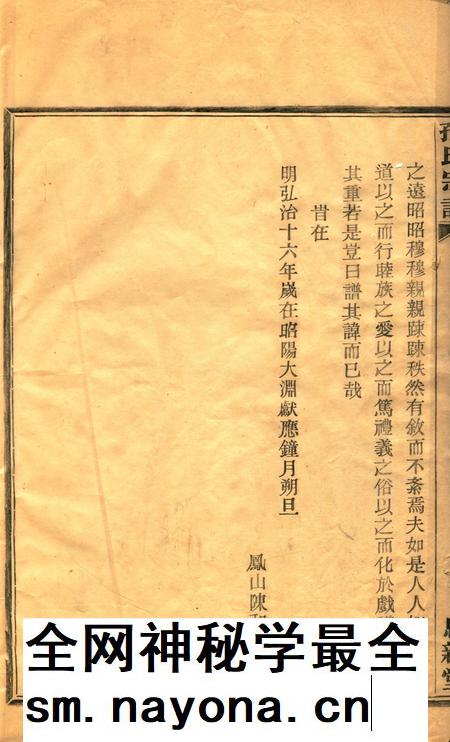 氏宗
之遠昭昭穆穆親親踈踈秩然有敘而不紊焉夫如是人人
道以之而行睦族之愛以之而篤禮義之俗以之而化於戲
其重若是豈曰譜其諱而已哉
旹在
明弘治十六年歲在昭陽大淵獻應鐘月朔旦
鳳山陳
全网神秘学最全
sm.nayona.cn